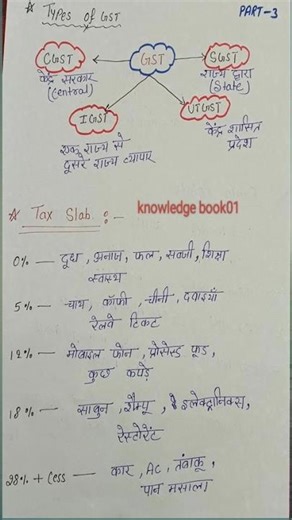 * Types of GST
PART-3
CGST
GST
SGST
केंद्र सरकार
(Central)
राज्य द्वारा
(State)
IGST
UTGST
एक राज्य से
दूसरे राज्य व्यापार
केंद्र शासित
प्रदेश
knowledge book01
* Tax Slab :-
0% — दूध, अनाज, फल, सब्जी, शिक्षा
स्वास्थ
5% — चाय, कॉफी, चीनी, दवाइयाँ
रेलवे टिकट
12% — मोबाइल फोन, प्रोसेस्ड फूड,
कुछ कपड़े
18% — साबुन, शैम्पू, इलेक्ट्रानिक्स,
रेस्टोरेंट
28% + Cess — कार, AC, तंबाकू,
पान मसाला